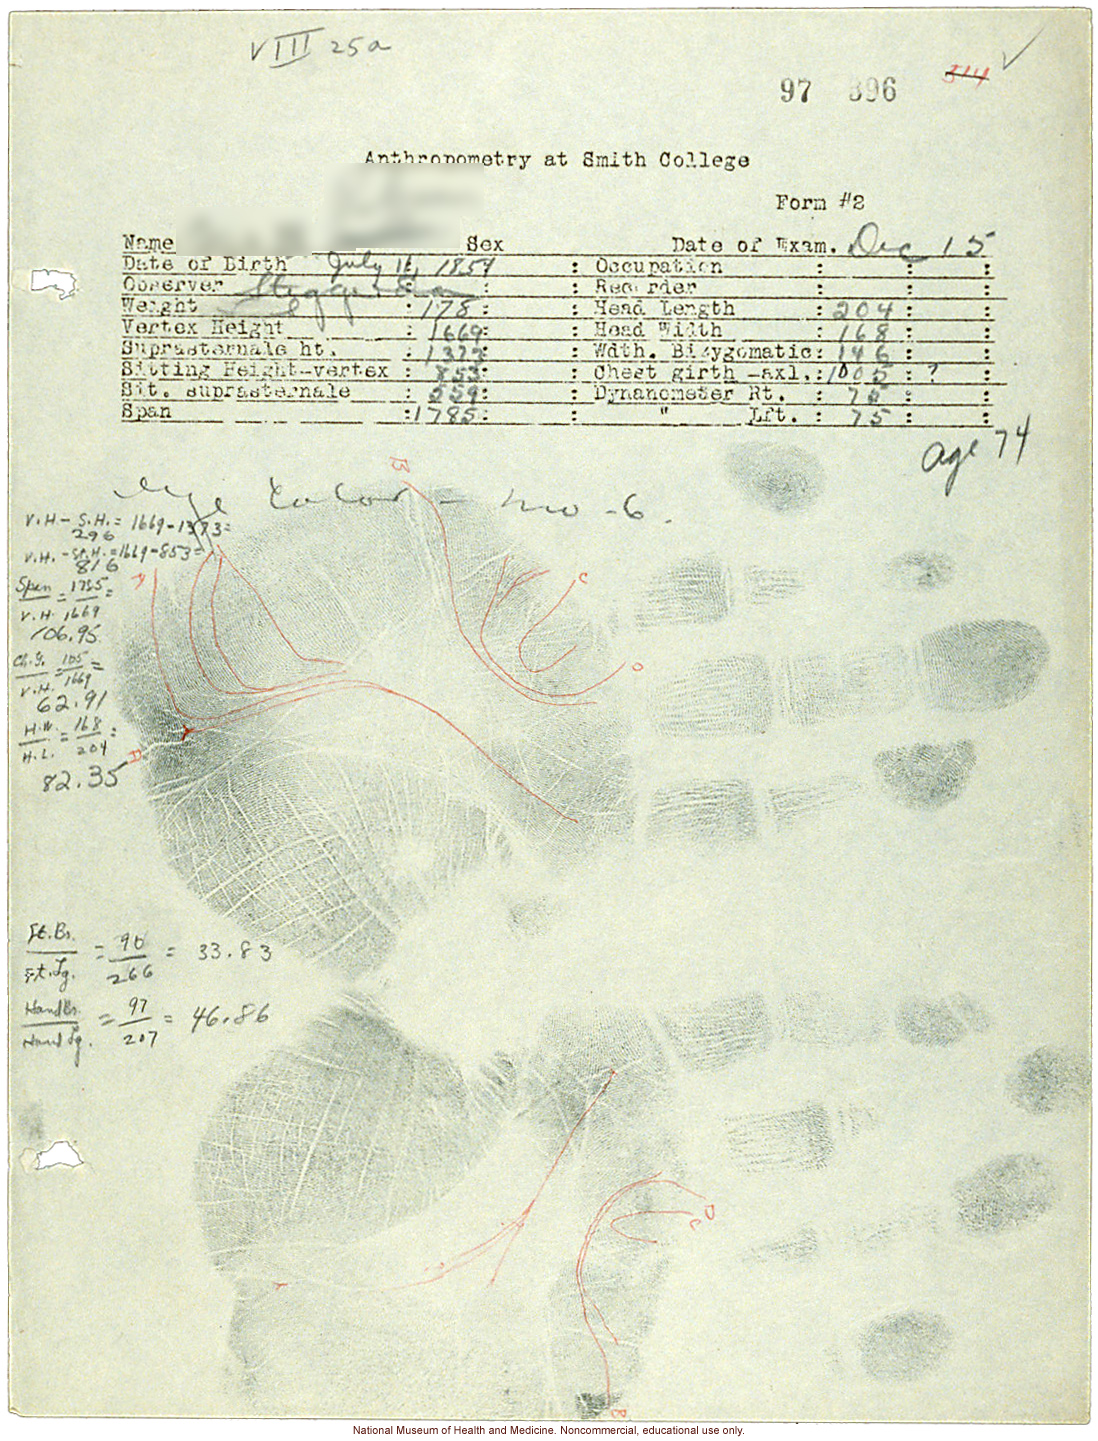 VIII 25a
97 896 314
Anthropometry at Smith College
Form #2
Name Sex Date of Exam. Dec 15
Date of Birth July 16, 1859 : Occupation : : :
Observer Steggerda : : Recorder : : :
Weight : 178 : : Head Length : 204 : :
Vertex Height : 1669 : : Head Width : 168 : :
Suprasternale ht. : 1373 : : Wdth. Bizygomatic: 146 : :
Sitting Height-vertex : 853 : : Chest girth -axl.: 1005 : ? :
Sit. suprasternale : 559 : : Dynanometer Rt. : 75 : :
Span : 1785 : : " Lft. : 75 : :
age 74
Eye Color - no - 6.
V.H - S.H. = 1669-1373 =
296
V.H. - St.H. = 1669-853 =
816
Span = 1785 =
V.H. 1669
106.95
Ch.G. = 105 =
V.H. 1669
62.91
H.W. = 168 =
H.L. 204
82.35
B
A
C
D
A
Ft.Br. = 90 = 33.83
Ft.Lg. 266
Hand Br. = 97 = 46.86
Hand Lg. 207
D
C
B
National Museum of Health and Medicine. Noncommercial, educational use only.